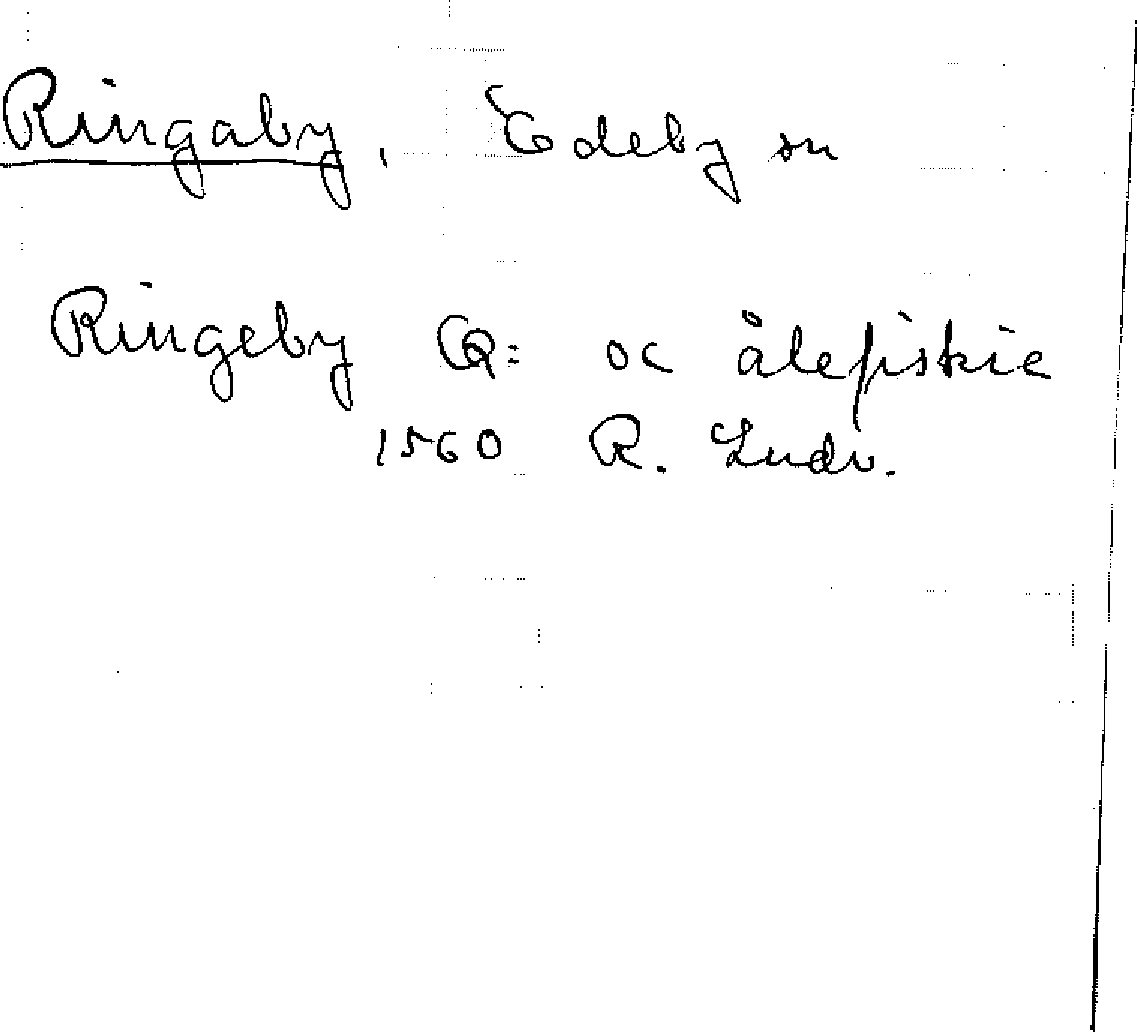 Ringaby, Edeby sn
Ringeby Q: oc ålefiskie
1560 R. Ludv.